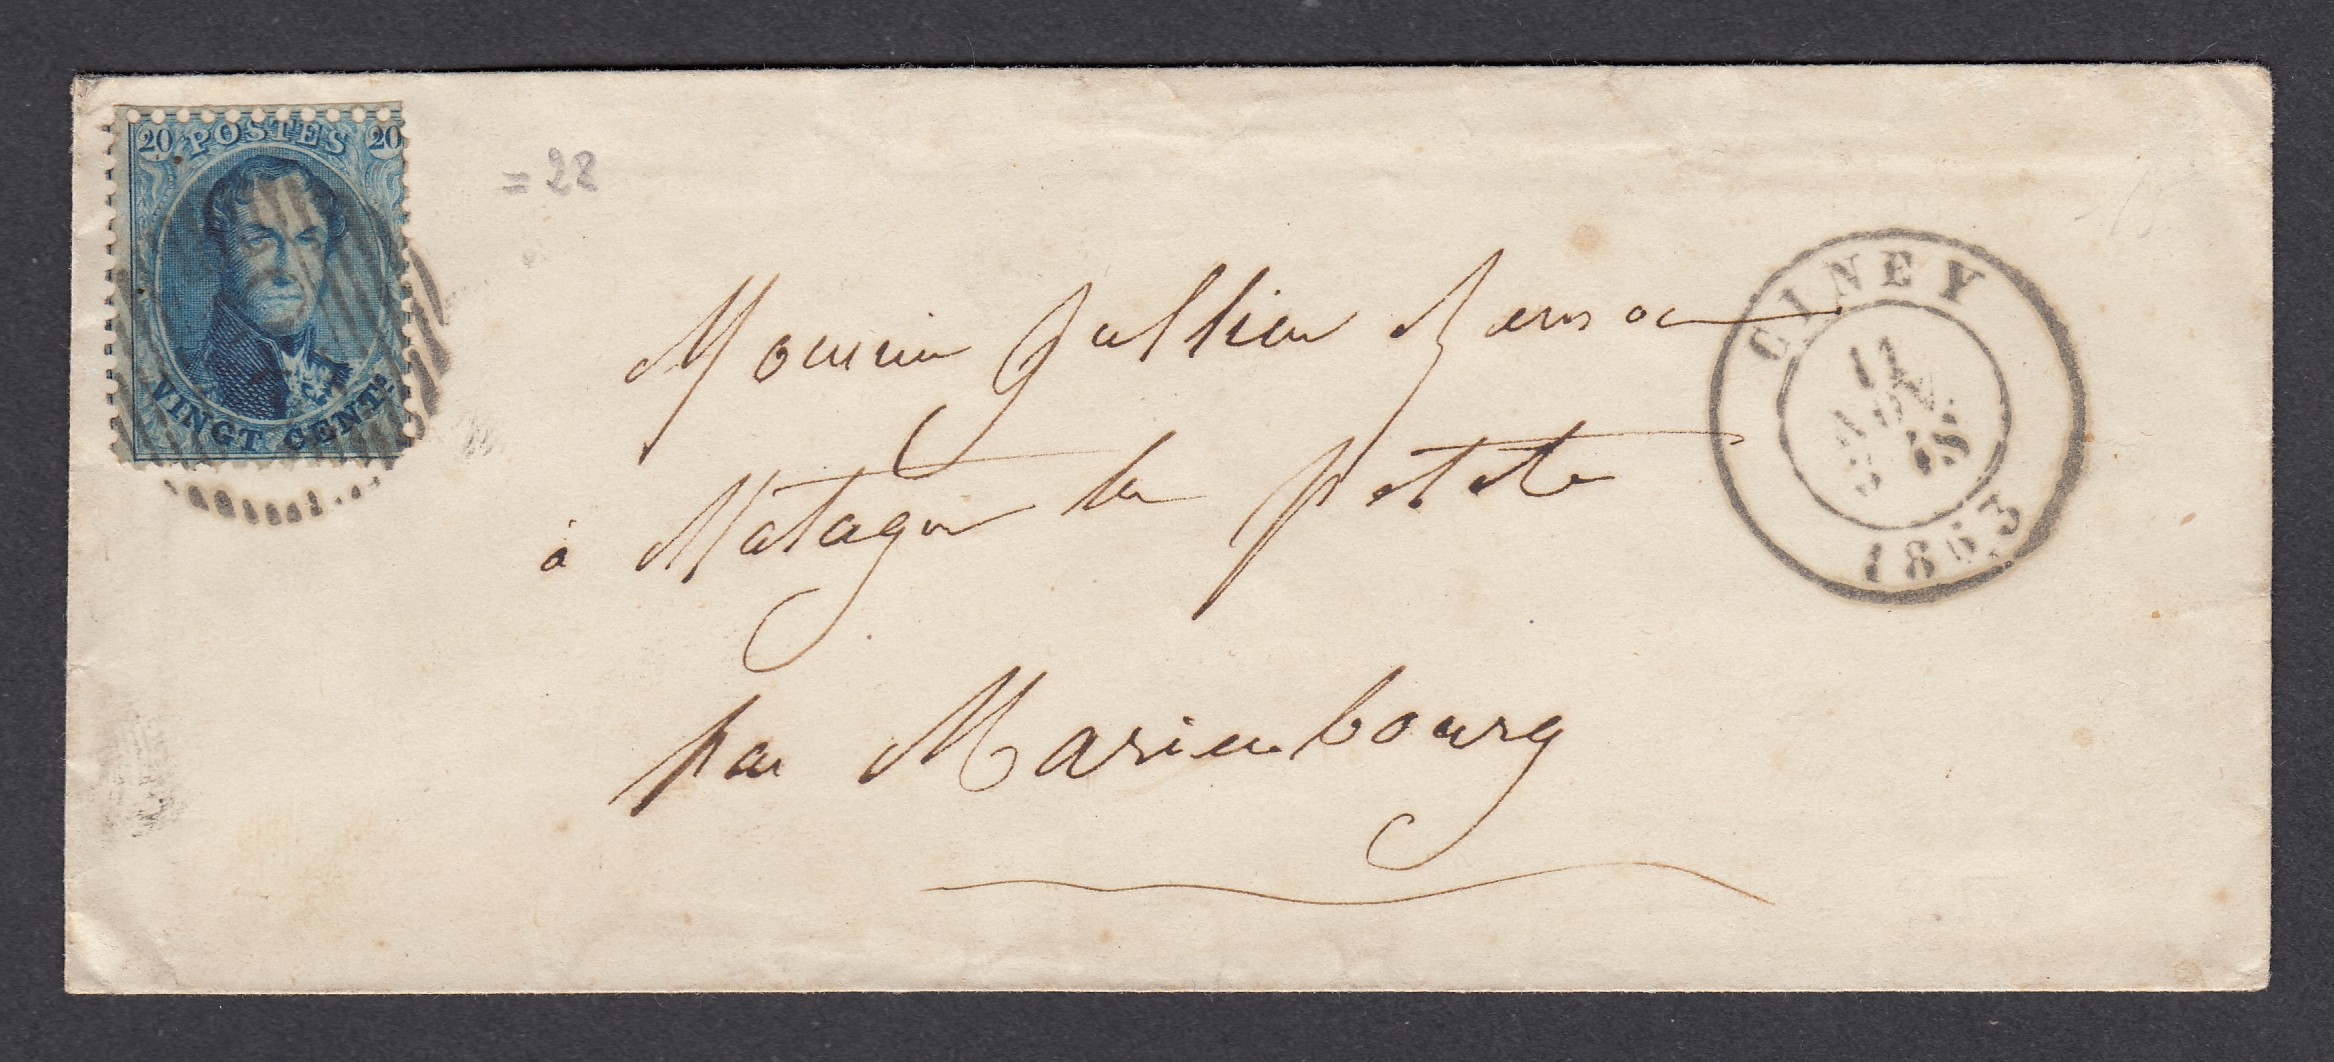 20 POSTES 20
VINGT CENTS
= 28
CINEY
11
1863
Monsieur Jullien
à Matagne la petite
par Marienbourg